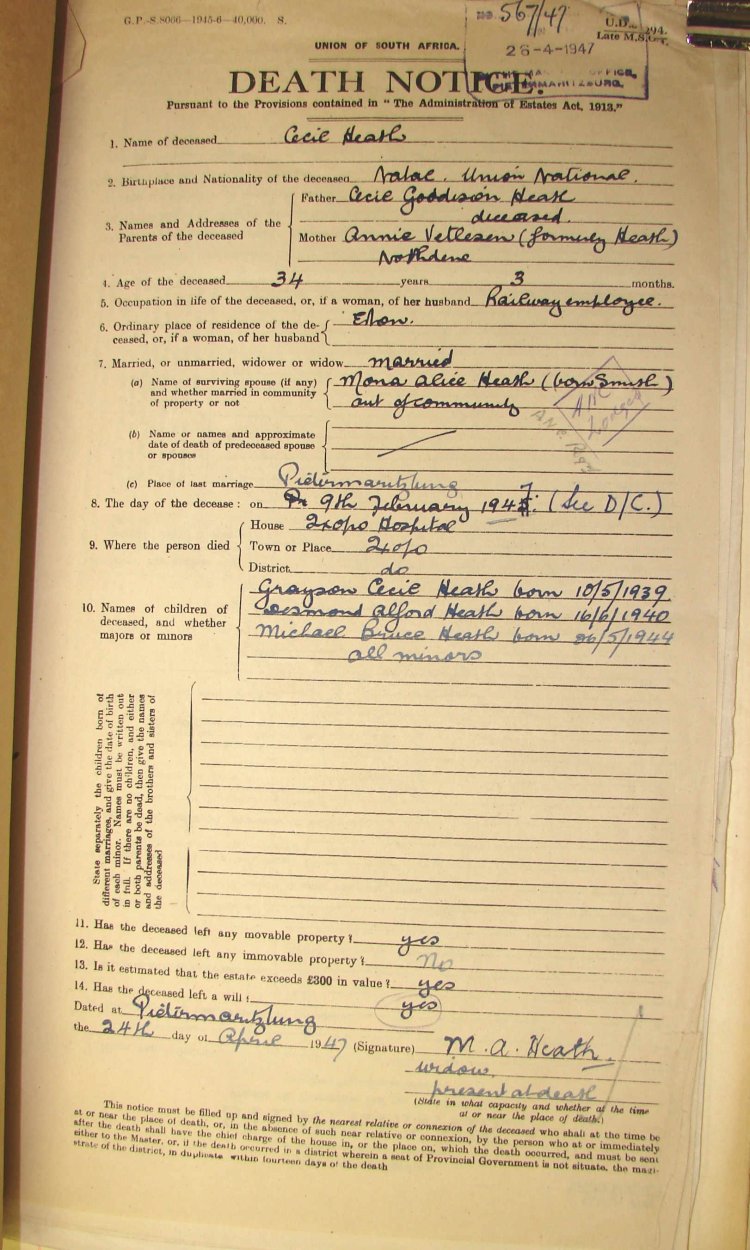 G.P.-S.8066—1945-6—40,000. S.
NO. 567/47
U.D. 294.
Late M.S.C.
26-4-1947
UNION OF SOUTH AFRICA.
DEATH NOTICE.
Pursuant to the Provisions contained in "The Administration of Estates Act, 1913."
1. Name of deceased Cecil Heath
2. Birthplace and Nationality of the deceased Natal. Union National.
3. Names and Addresses of the Parents of the deceased
Father Cecil Goddison Heath
deceased.
Mother Annie Vetlesen (formerly Heath)
Northdene
4. Age of the deceased 34 years 3 months.
5. Occupation in life of the deceased, or, if a woman, of her husband Railway employee.
6. Ordinary place of residence of the de-
ceased, or, if a woman, of her husband
7. Married, or unmarried, widower or widow married
(a) Name of surviving spouse (if any)
and whether married in community
of property or not
Mona Alice Heath (born Smith)
out of community
(b) Name or names and approximate
date of death of predeceased spouse
or spouses
(c) Place of last marriage Pietermaritzburg
8. The day of the decease: on 9th February 1947. (See D/C.)
9. Where the person died
House Ixopo Hospital
Town or Place Ixopo
District do
10. Names of children of
deceased, and whether
majors or minors
Grayson Cecil Heath born 10/5/1939
Desmond Alford Heath born 16/6/1940
Michael Bruce Heath born 26/5/1944
all minors
State separately the children born of
different marriages, and give the date of birth
of each minor. Names must be written out
in full. If there are no children, and either
or both parents be dead, then give the names
and addresses of the brothers and sisters of
the deceased
11. Has the deceased left any movable property? yes
12. Has the deceased left any immovable property? No
13. Is it estimated that the estate exceeds £300 in value? yes
14. Has the deceased left a will? yes
Dated at Pietermaritzburg
the 24th day of April 1947 (Signature) M. A. Heath.
widow.
present at death
(State in what capacity and whether at the time
at or near the place of death.)
This notice must be filled up and signed by the nearest relative or connexion of the deceased who shall at the time be
at or near the place of death, or, in the absence of such near relative or connexion, by the person who at or immediately
after the death shall have the chief charge of the house in, or the place on, which the death occurred, and must be sent
either to the Master, or, if the death occurred in a district wherein a seat of Provincial Government is not situate, the magi-
strate of the district, in duplicate within fourteen days of the death